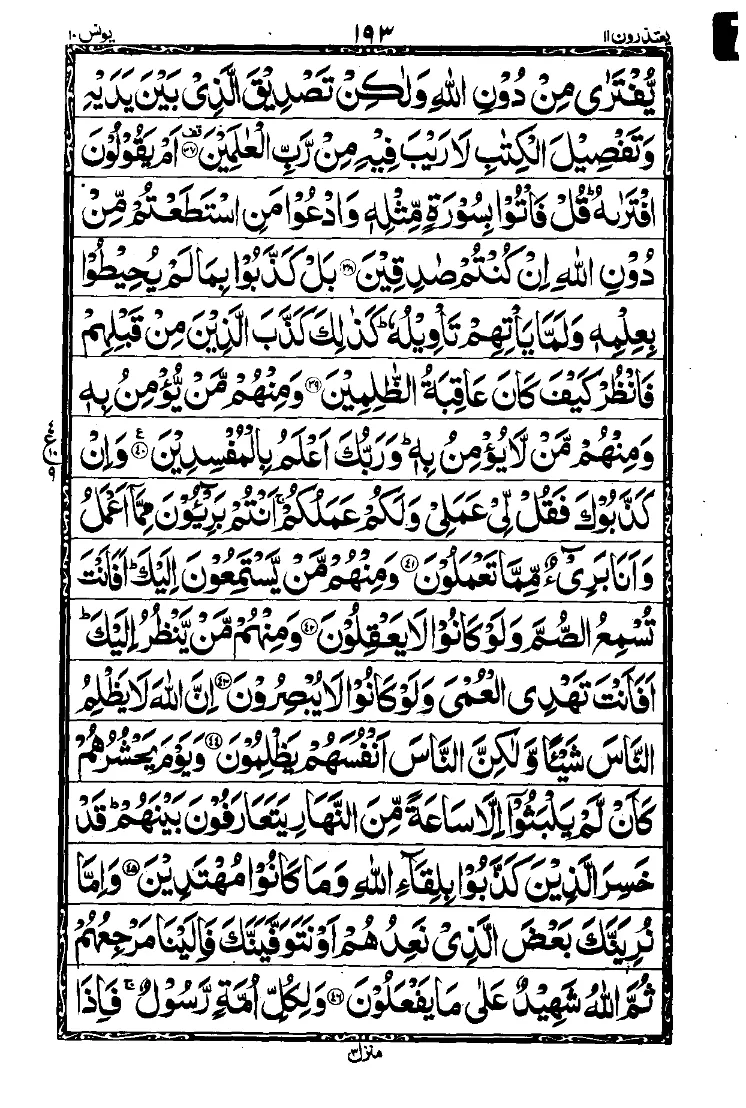 یعتذرون ۱۱ ۱۹۳ یونس ۱۰
یُّفْتَرٰی مِنْ دُوْنِ اللّٰهِ وَلٰكِنْ تَصْدِیْقَ الَّذِیْ بَیْنَ یَدَیْهِ
وَتَفْصِیْلَ الْكِتٰبِ لَا رَیْبَ فِیْهِ مِنْ رَّبِّ الْعٰلَمِیْنَ ۣ۟ قف ۳۷ اَمْ یَقُوْلُوْنَ
افْتَرٰىهُ ؕ قُلْ فَاْتُوْا بِسُوْرَةٍ مِّثْلِهٖ وَادْعُوْا مَنِ اسْتَطَعْتُمْ مِّنْ
دُوْنِ اللّٰهِ اِنْ كُنْتُمْ صٰدِقِیْنَ ۳۸ بَلْ كَذَّبُوْا بِمَا لَمْ یُحِیْطُوْا
بِعِلْمِهٖ وَلَمَّا یَاْتِهِمْ تَاْوِیْلُهٗ ؕ كَذٰلِكَ كَذَّبَ الَّذِیْنَ مِنْ قَبْلِهِمْ
فَانْظُرْ كَیْفَ كَانَ عَاقِبَةُ الظّٰلِمِیْنَ ۳۹ وَمِنْهُمْ مَّنْ یُّؤْمِنُ بِهٖ
وَمِنْهُمْ مَّنْ لَّا یُؤْمِنُ بِهٖ ؕ وَرَبُّكَ اَعْلَمُ بِالْمُفْسِدِیْنَ ع ۴۰ وَاِنْ
۴ ع ۱۰ ۹
كَذَّبُوْكَ فَقُلْ لِّیْ عَمَلِیْ وَلَكُمْ عَمَلُكُمْ ۚ اَنْتُمْ بَرِیْٓـُٔوْنَ مِمَّاۤ اَعْمَلُ
وَاَنَا بَرِیْٓءٌ مِّمَّا تَعْمَلُوْنَ ۴۱ وَمِنْهُمْ مَّنْ یَّسْتَمِعُوْنَ اِلَیْكَ ؕ اَفَاَنْتَ
تُسْمِعُ الصُّمَّ وَلَوْ كَانُوْا لَا یَعْقِلُوْنَ ۴۲ وَمِنْهُمْ مَّنْ یَّنْظُرُ اِلَیْكَ ؕ
اَفَاَنْتَ تَهْدِی الْعُمْیَ وَلَوْ كَانُوْا لَا یُبْصِرُوْنَ ۴۳ اِنَّ اللّٰهَ لَا یَظْلِمُ
النَّاسَ شَیْـًٔا وَّلٰكِنَّ النَّاسَ اَنْفُسَهُمْ یَظْلِمُوْنَ ۴۴ وَیَوْمَ یَحْشُرُهُمْ
كَاَنْ لَّمْ یَلْبَثُوْۤا اِلَّا سَاعَةً مِّنَ النَّهَارِ یَتَعَارَفُوْنَ بَیْنَهُمْ ؕ قَدْ
خَسِرَ الَّذِیْنَ كَذَّبُوْا بِلِقَآءِ اللّٰهِ وَمَا كَانُوْا مُهْتَدِیْنَ ۴۵ وَاِمَّا
نُرِیَنَّكَ بَعْضَ الَّذِیْ نَعِدُهُمْ اَوْ نَتَوَفَّیَنَّكَ فَاِلَیْنَا مَرْجِعُهُمْ
ثُمَّ اللّٰهُ شَهِیْدٌ عَلٰی مَا یَفْعَلُوْنَ ۴۶ وَلِكُلِّ اُمَّةٍ رَّسُوْلٌ ۚ فَاِذَا
منزل ۳